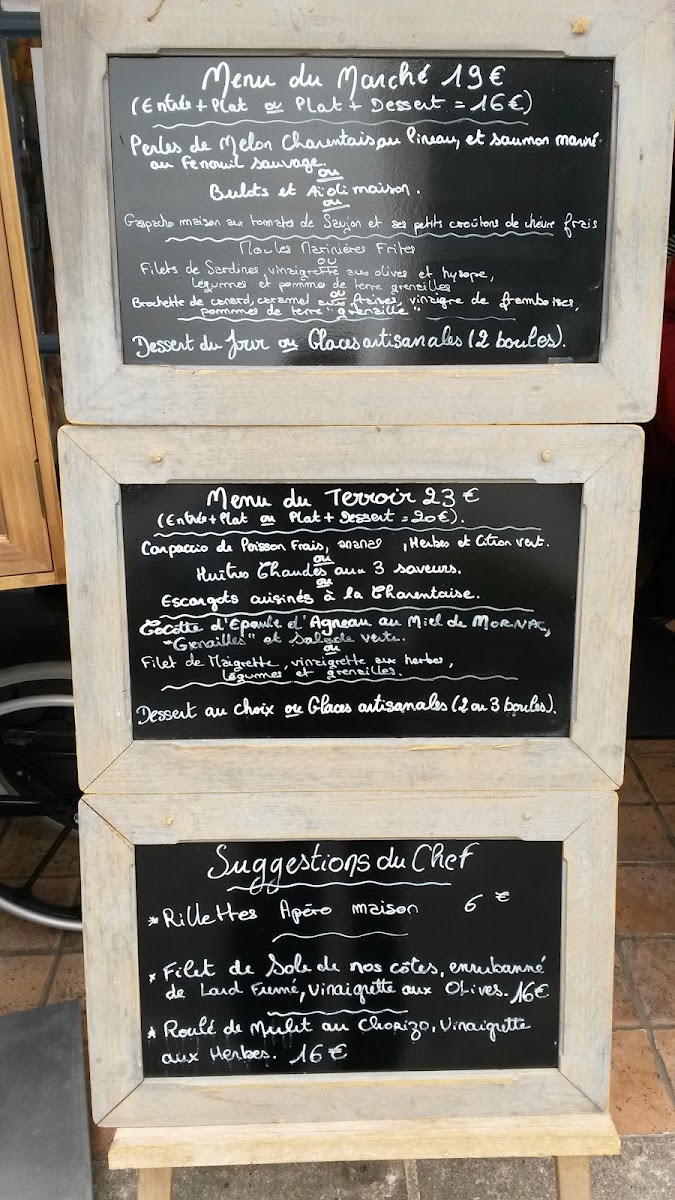 Menu du Marché 19€
(Entrée + Plat ou Plat + Dessert = 16€)
Perles de Melon Charentais au Pineau, et saumon mariné
au Fenouil sauvage.
ou
Bulots et Aïoli maison.
ou
Gaspacho maison aux tomates de Saujon et ses petits croûtons de chèvre frais
Moules Marinières Frites
ou
Filets de Sardines, vinaigrette aux olives et hysope,
légumes et pomme de terre grenailles
ou
Brochette de canard, caramel aux fraises, vinaigre de framboises,
pommmes de terre "grenaille"
Dessert du Jour ou Glaces artisanales (2 boules).
Menu du Terroir 23€
(Entrée + Plat ou Plat + Dessert = 20€).
Carpaccio de Poisson Frais, ananas , Herbes et Citron vert.
ou
Huîtres Chaudes aux 3 saveurs.
ou
Escargots cuisinés à la Charentaise.
Cocotte d'Epaule d'Agneau au Miel de MORNAC,
"Grenailles" et Salade verte.
ou
Filet de Maigrette, vinaigrette aux herbes,
légumes et grenailles.
Dessert au choix ou Glaces artisanales (2 ou 3 boules).
Suggestions du Chef
* Rillettes Apéro maison 6€
* Filet de Sole de nos côtes, enrubanné
de Lard Fumé, Vinaigrette aux Olives. 16€
* Roulé de Mulet au Chorizo, Vinaigrette
aux Herbes. 16€